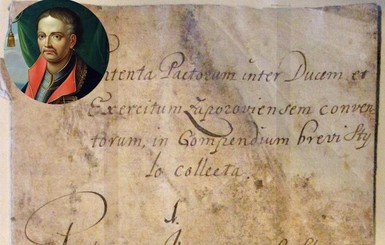 ntenta Pactorum inter Ducem et
Exercitum Zaporoviensem conven-
torum, in Compendium brevi Sty
lo Collecta.